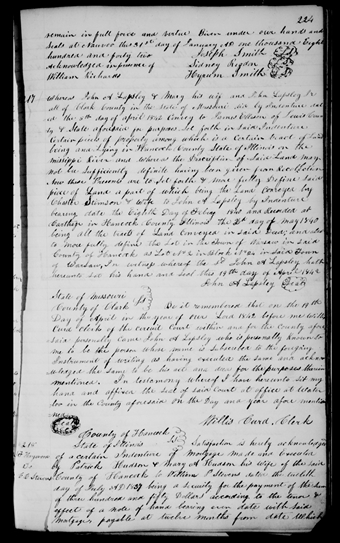 224
remain in full force and virtue Given under our hands and
seals at Nauvoo the 31st day of January AD one thousand Eight
hundred and forty two Joseph Smith
acknowledged in presence of Sidney Rigdon
William Richards Hyrum Smith
Whereas John A Lapsley & Mary his wife and John Lapsley Jr
all of Clark County in the state of Missouri did by Indenture
the 8th day of April 1842 Convey to James of Lewis County
& State aforesaid in purpose set forth in said Indenture
Certain piece of property among which is a Certain Tract of Land
being and lying in Hancock County State of Illinois on the
Missippi River and whereas the Description of Said Land may
not be sufficiently definite having been given from recollection
Now these Presents are to set forth & more fully Define said
piece of Land a part of which being the Land conveyed by
Wife to John A Lapsley by Indenture
bearing date the Eighth Day of and Recorded at
Carthage in Hancock County Illinois the day of May 1840
being all the Tract of Land Conveyed in said Deed and also
to more fully define the Lot in the Town of Warsaw in said
County of Hancock is Lot No 2 in Block No in said Town
of Warsaw In testimony whereof the Sd John A Lapsley hath
hereunto set his hand and seal this 19th day of April 1842
John A Lapsley Seal
State of Missouri
County of Clark Be it remembered that on the 19th
Day of April in the year of our Lord 1842 before me Willis
Curd Clerk of the Circuit Court within and for the County afore
said personally Came John A Lapsley who is personally known to
me to be the person whose name is subscribed to the foregoing
Instrument of writing as having executed the same and acknow
ledged the same to be his act and deed for the purposes therein
mentioned. In testimony whereof I have hereunto set my
hand and affixed the seal of said Court at office at Water
loo in the County aforesaid on the Day and year afore mention
ed
Willis Curd Clerk
County of Hancock
State of Illinois Satisfaction is hereby acknowledged
of a certain Indenture of Mortgage made and executed
by Patrick Hudson & Mary A Hudson his wife of the said
County of Hancock to William dated the twelfth
day of July AD 1837 being a security for the payment of the sum
of three hundred and fifty Dollars according to the tenor &
effect of a note of hand bearing even date with said
mortgage, payable at twelve months from date Which